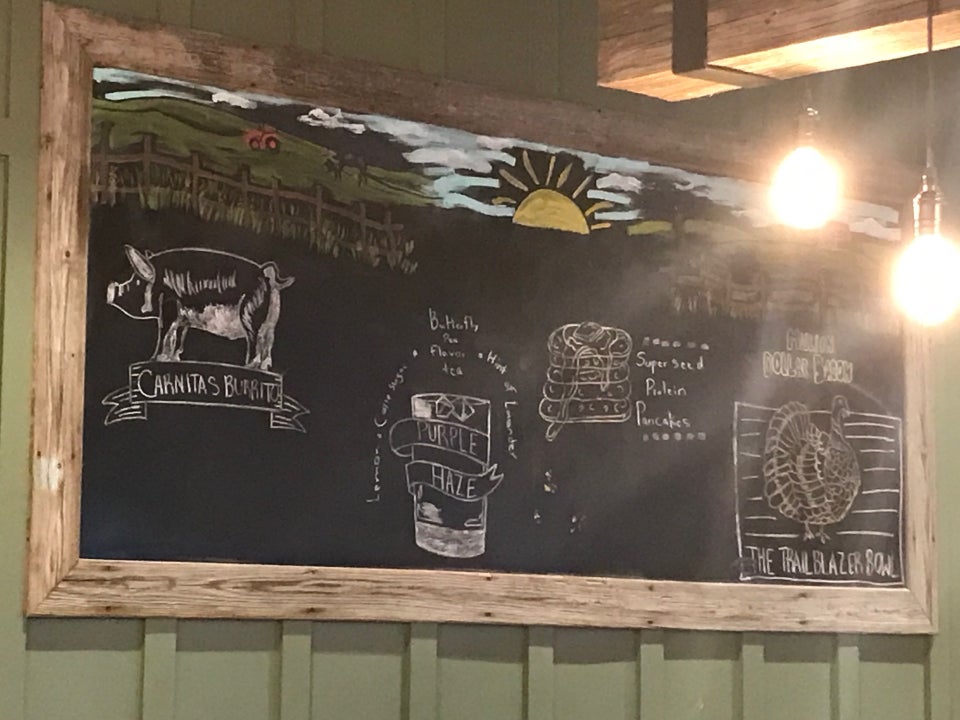 CARNITAS BURRITO
Butterfly
Pea
Flower
tea
Lemon • Cane sugar •
• Hint of Lavender
PURPLE
HAZE
Superseed
Protein
Pancakes
MILLION
DOLLAR BACON
THE TRAILBLAZER BOWL